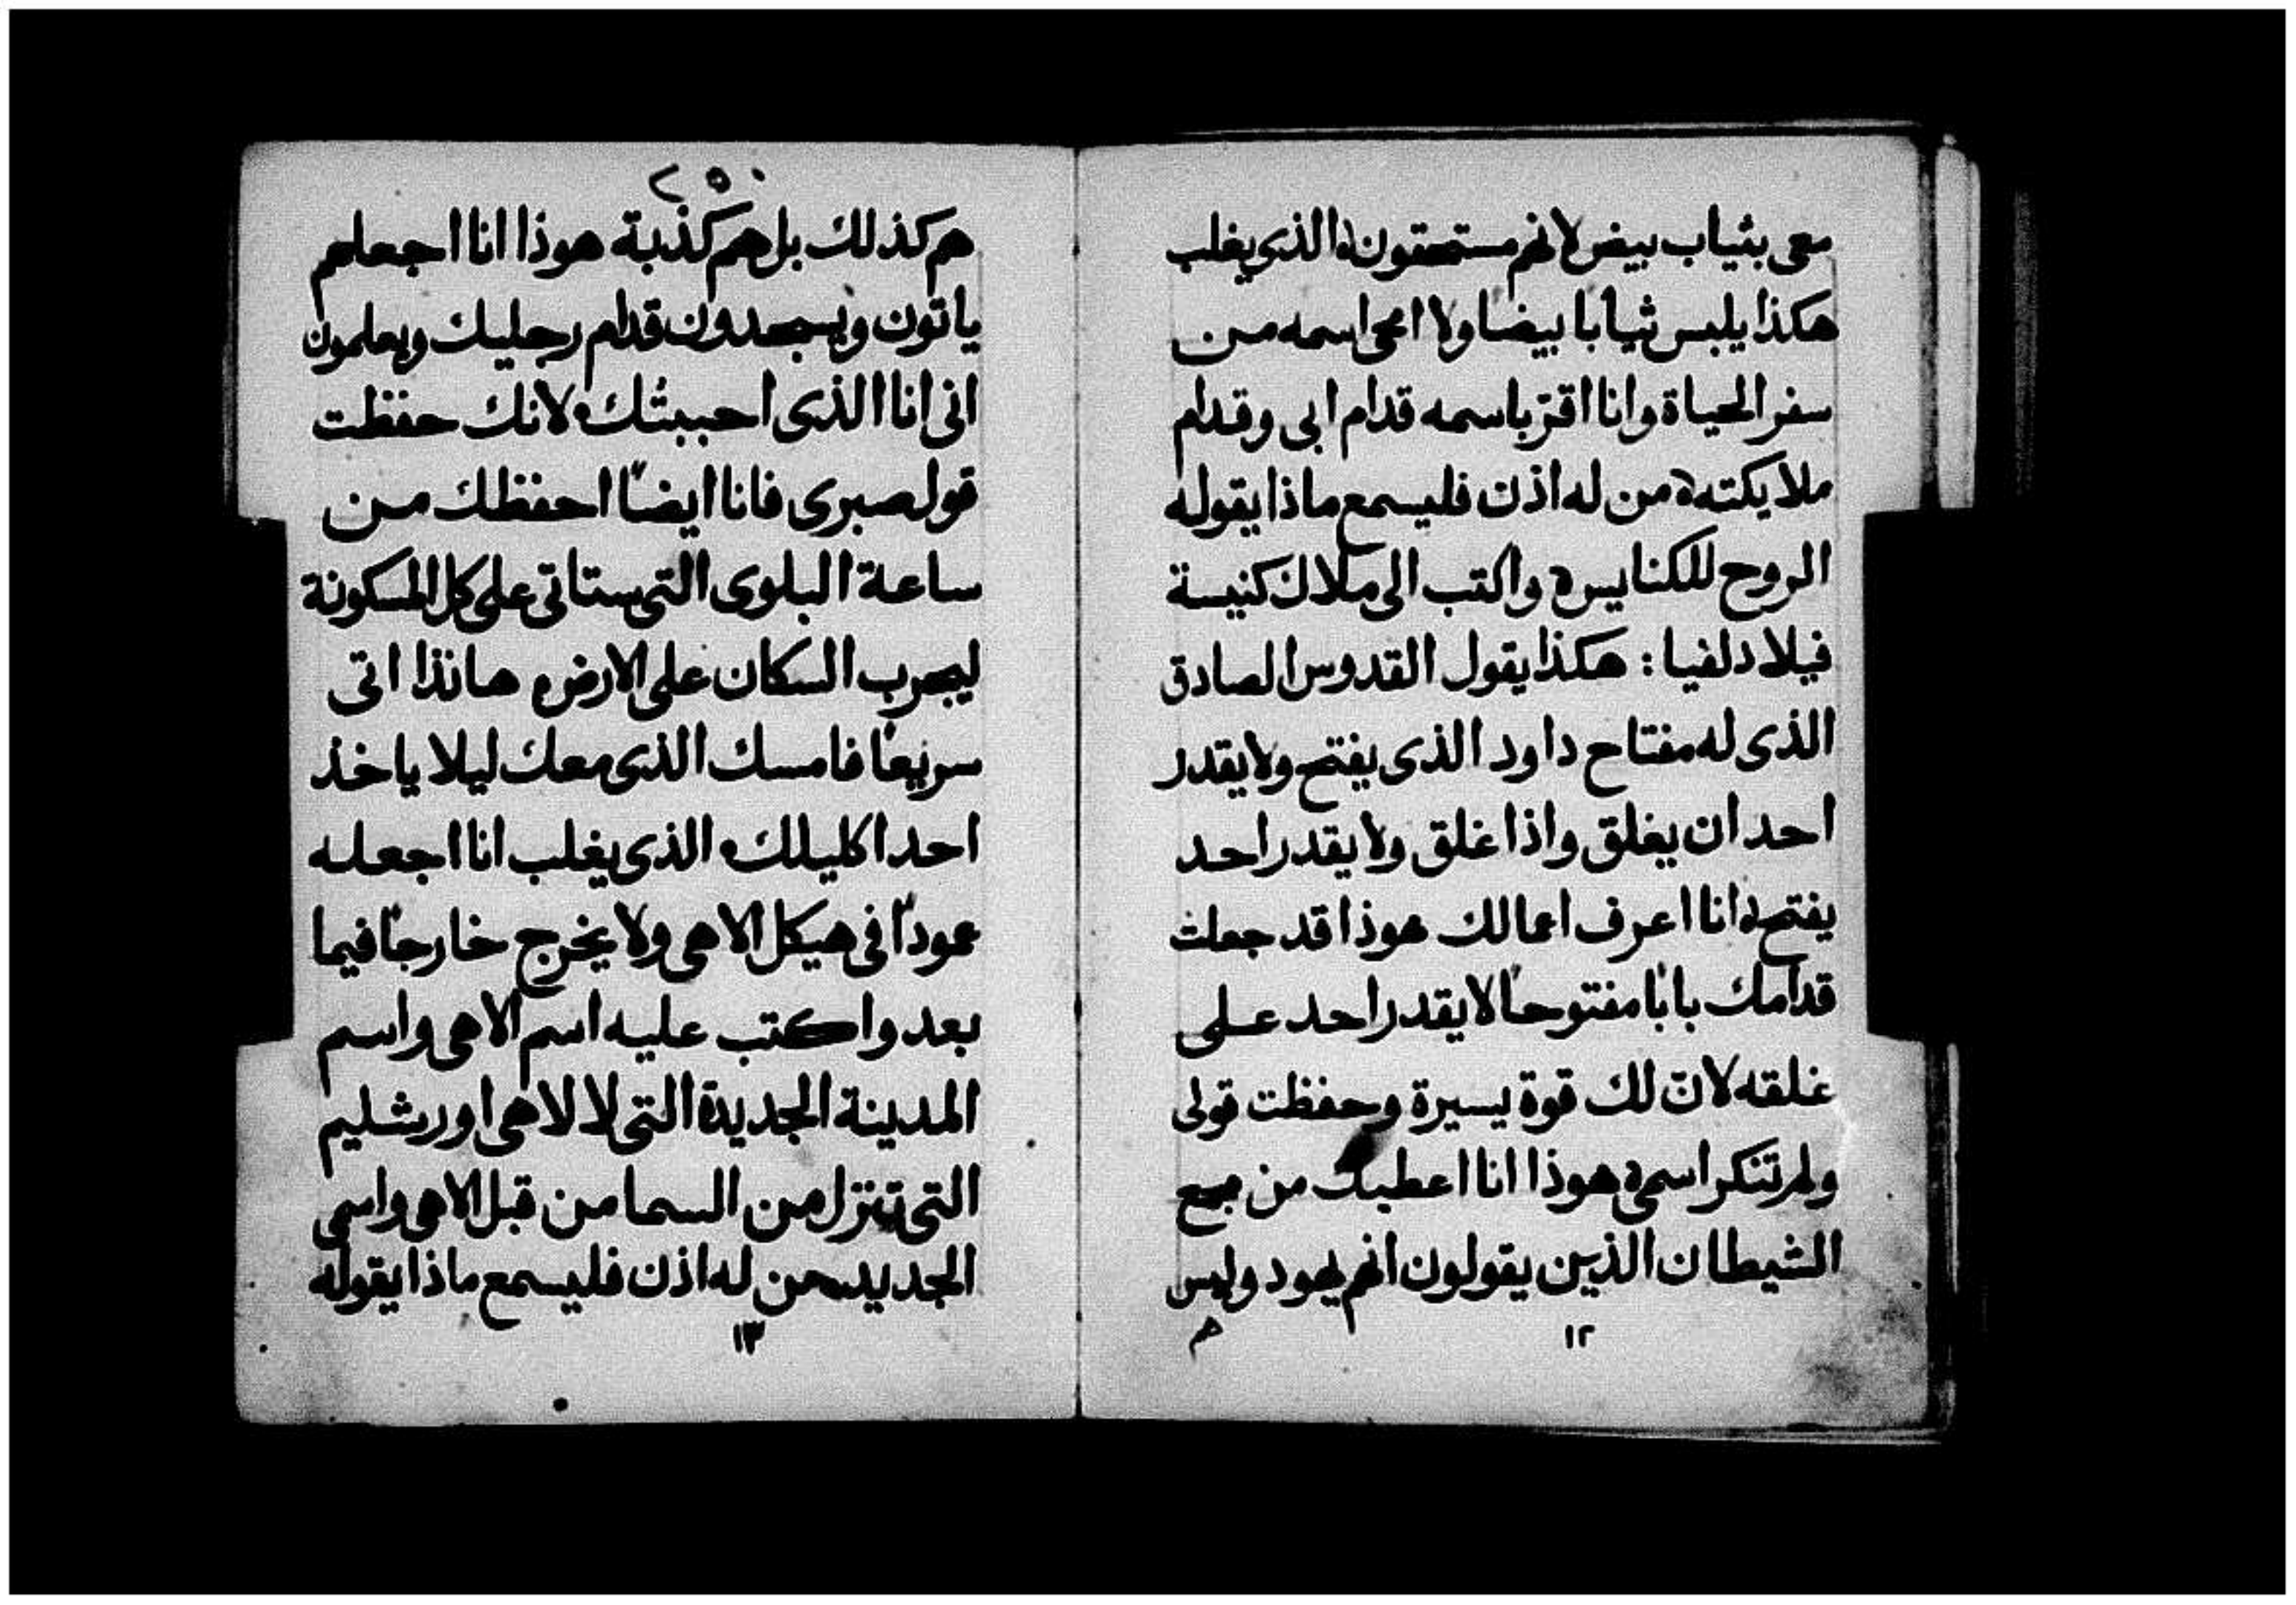 معى بثياب بيض لانهم مستحقون ه الذى يغلب
هكذا يلبس ثيابا بيضا ولا امحى اسمه من
سفر الحياة وانا اقرّ باسمه قدام ابى وقدام
ملايكته ه من له اذن فليسمع ماذا يقوله
الروح للكنايس ه واكتب الى ملاك كنيسة
فيلادلفيا : هكذا يقول القدوس الصادق
الذى له مفتاح داود الذى يفتح ولا يقدر
احد ان يغلق واذا غلق ولا يقدر احد
يفتح ه انا اعرف اعمالك هوذا قد جعلت
قدامك بابًا مفتوحًا لا يقدر احد على
غلقه لانّ لك قوة يسيرة وحفظت قولى
ولم تنكر اسمى ه هوذا انا اعطيك من مجمع
الشيطان الذين يقولون انهم يهود وليس
هم
١٢
٢٥٠
هم كذلك بل هم كذبة هوذا انا اجعلهم
ياتون ويسجدون قدام رجليك ويعلمون
انى انا الذى احببتك ه لانك حفظت
قول صبرى فانا ايضًا احفظك من
ساعة البلوى التى ستاتى على كل المسكونة
ليجرب السكان على الارض ه هانذا اتى
سريعًا فامسك الذى معك ليلا ياخذ
احد اكليلك ه الذى يغلب انا اجعله
عمودًا فى هيكل الاهى ولا يخرج خارجًا فيما
بعد واكتب عليه اسم الاهى واسم
المدينة الجديدة التى لالاهى اورشليم
التى تنزل من السما من قبل الاهى واسمى
الجديد من له اذن فليسمع ماذا يقوله
١٣